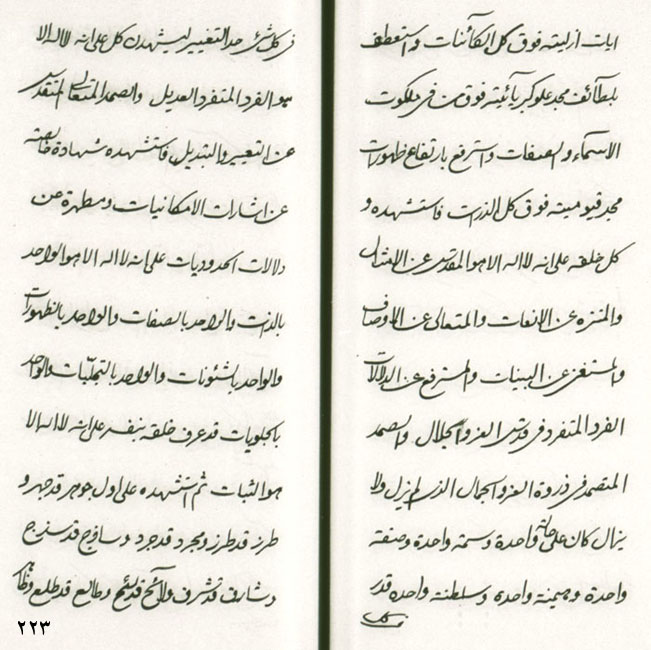 ایات ازلیته فوق کل الکائنات و استعطف
بلطائف مجد علو کبریائیته فوق من فی ملکوت
الاسماء و الصفات و استرفع بارتفاع ظهورات
مجد قیومیته فوق کل الذرات فاستشهده و
کل خلقه علی انه لا اله الا هو المقدس عن الامثال
و المنزه عن الانعات و المتعالی عن الاوصاف
و المستغنی عن البینات و المسترفع عن الدلالات
الفرد المتفرد فی قدس العز و الجلال و الصمد
المتصمد فی ذروة العز و الجمال الذی لم یزل و لا
یزال کان علی حالة واحدة و سمة واحدة و صفته
واحدة و هیمنة واحدة و سلطنة واحده قدر
و کل
فی کل شئ حد التغییر لیشهدن کل علی انه لا اله الا
هو الفرد المتفرد العدیل و الصمد المتعالی المتقدس
عن التعییر و التبدیل فاستشهده شهادة خالصته
عن اشارات الامکانیات و مطهرة من
دلالات الحدودیات علی انه لا اله الا هو الواحد
بالذات و الواحد بالصفات و الواحد بالظهورات
و الواحد بالشئونات و الواحد بالتجلیات و الواحد
بالجلویات قد عرف خلقه بنفسه علی انه لا اله الا
هو الثبات ثم استشهده علی اول جوهر قد جهر و
طرز قد طرز و مجرد قد جرد و سافج قد سزج
و شارق قد شرق و لائح قد لیح و طالع قد طلع
۲۲۳